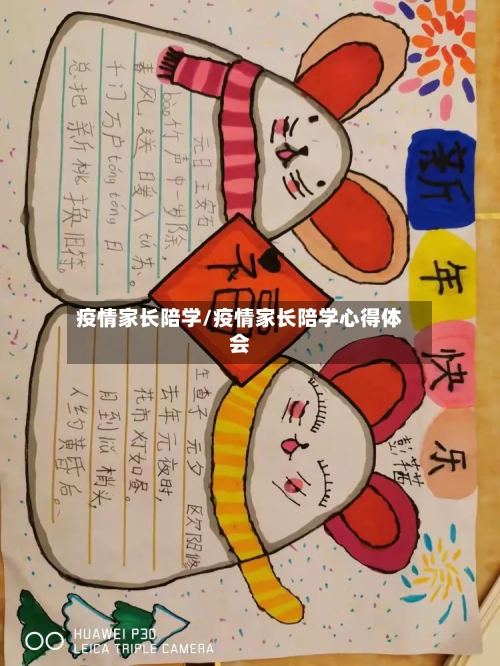 新年快乐
元日 王安石
bào竹声中一岁除,
春风送暖入tú苏。
千门万户tóngtóng日,
总把新桃换旧符。
福
疫情家长陪学/疫情家长陪学心得体
会
生查子 元夕 欧阳修
去年元夜时,
花市灯如昼。
月到
梢头,
人约黄昏后。
HUAWEI P30
LEICA TRIPLE CAMERA